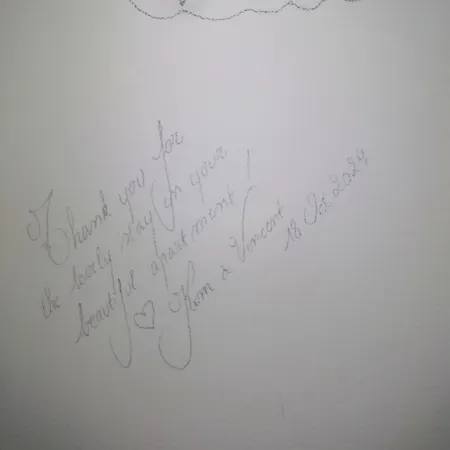 Thank you for
the lovely stay in your
beautiful apartment!
♡ Kim & Vincent
Oct 2024